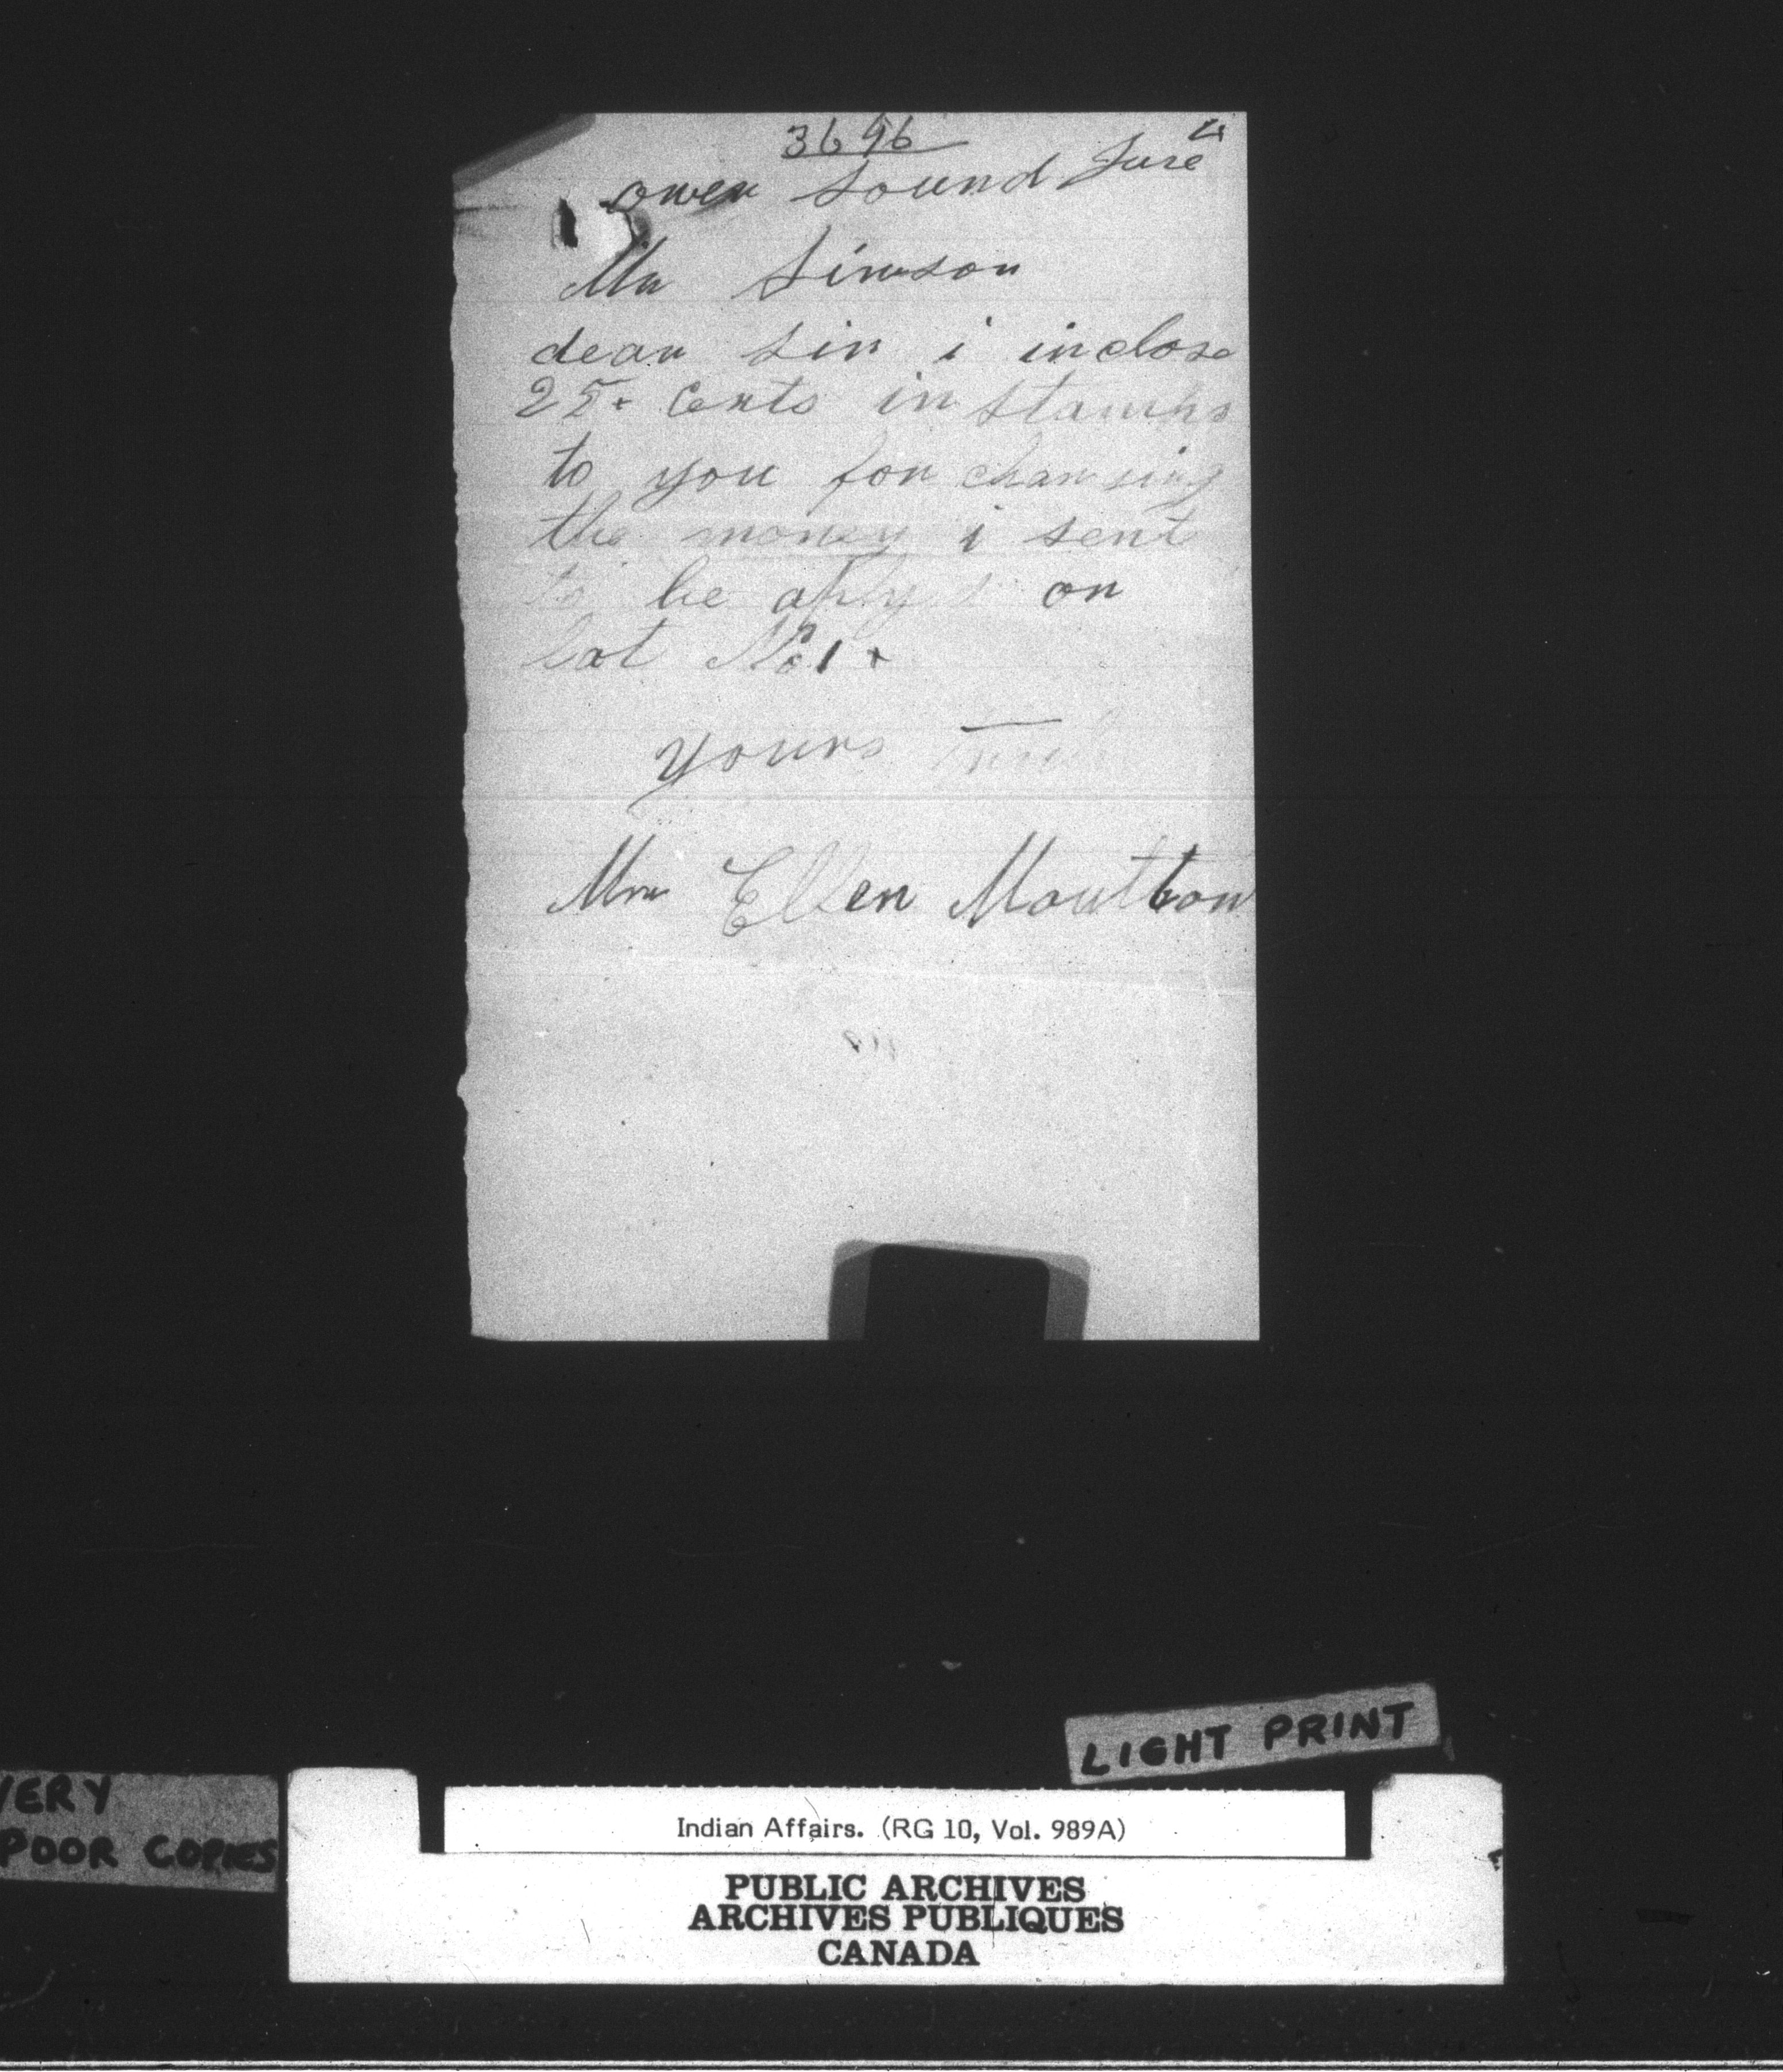 3696
4
owen Sound June
Mr Simson
dear Sir i inclose
25 Cents in stamps
to you for chansing
the money i sent
to be aplyd on
lot No 1
yours
Mrs Ellen Moutton
LIGHT PRINT
VERY
POOR COPIES
Indian Affairs. (RG 10, Vol. 989A)
PUBLIC ARCHIVES
ARCHIVES PUBLIQUES
CANADA